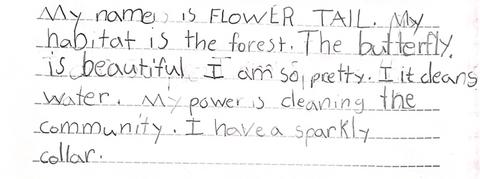 My name is FLOWER TAIL. My
habitat is the forest. The butterfly.
is beautiful I am so pretty. I it cleans
water. My power is cleaning the
community. I have a sparkly
collar.